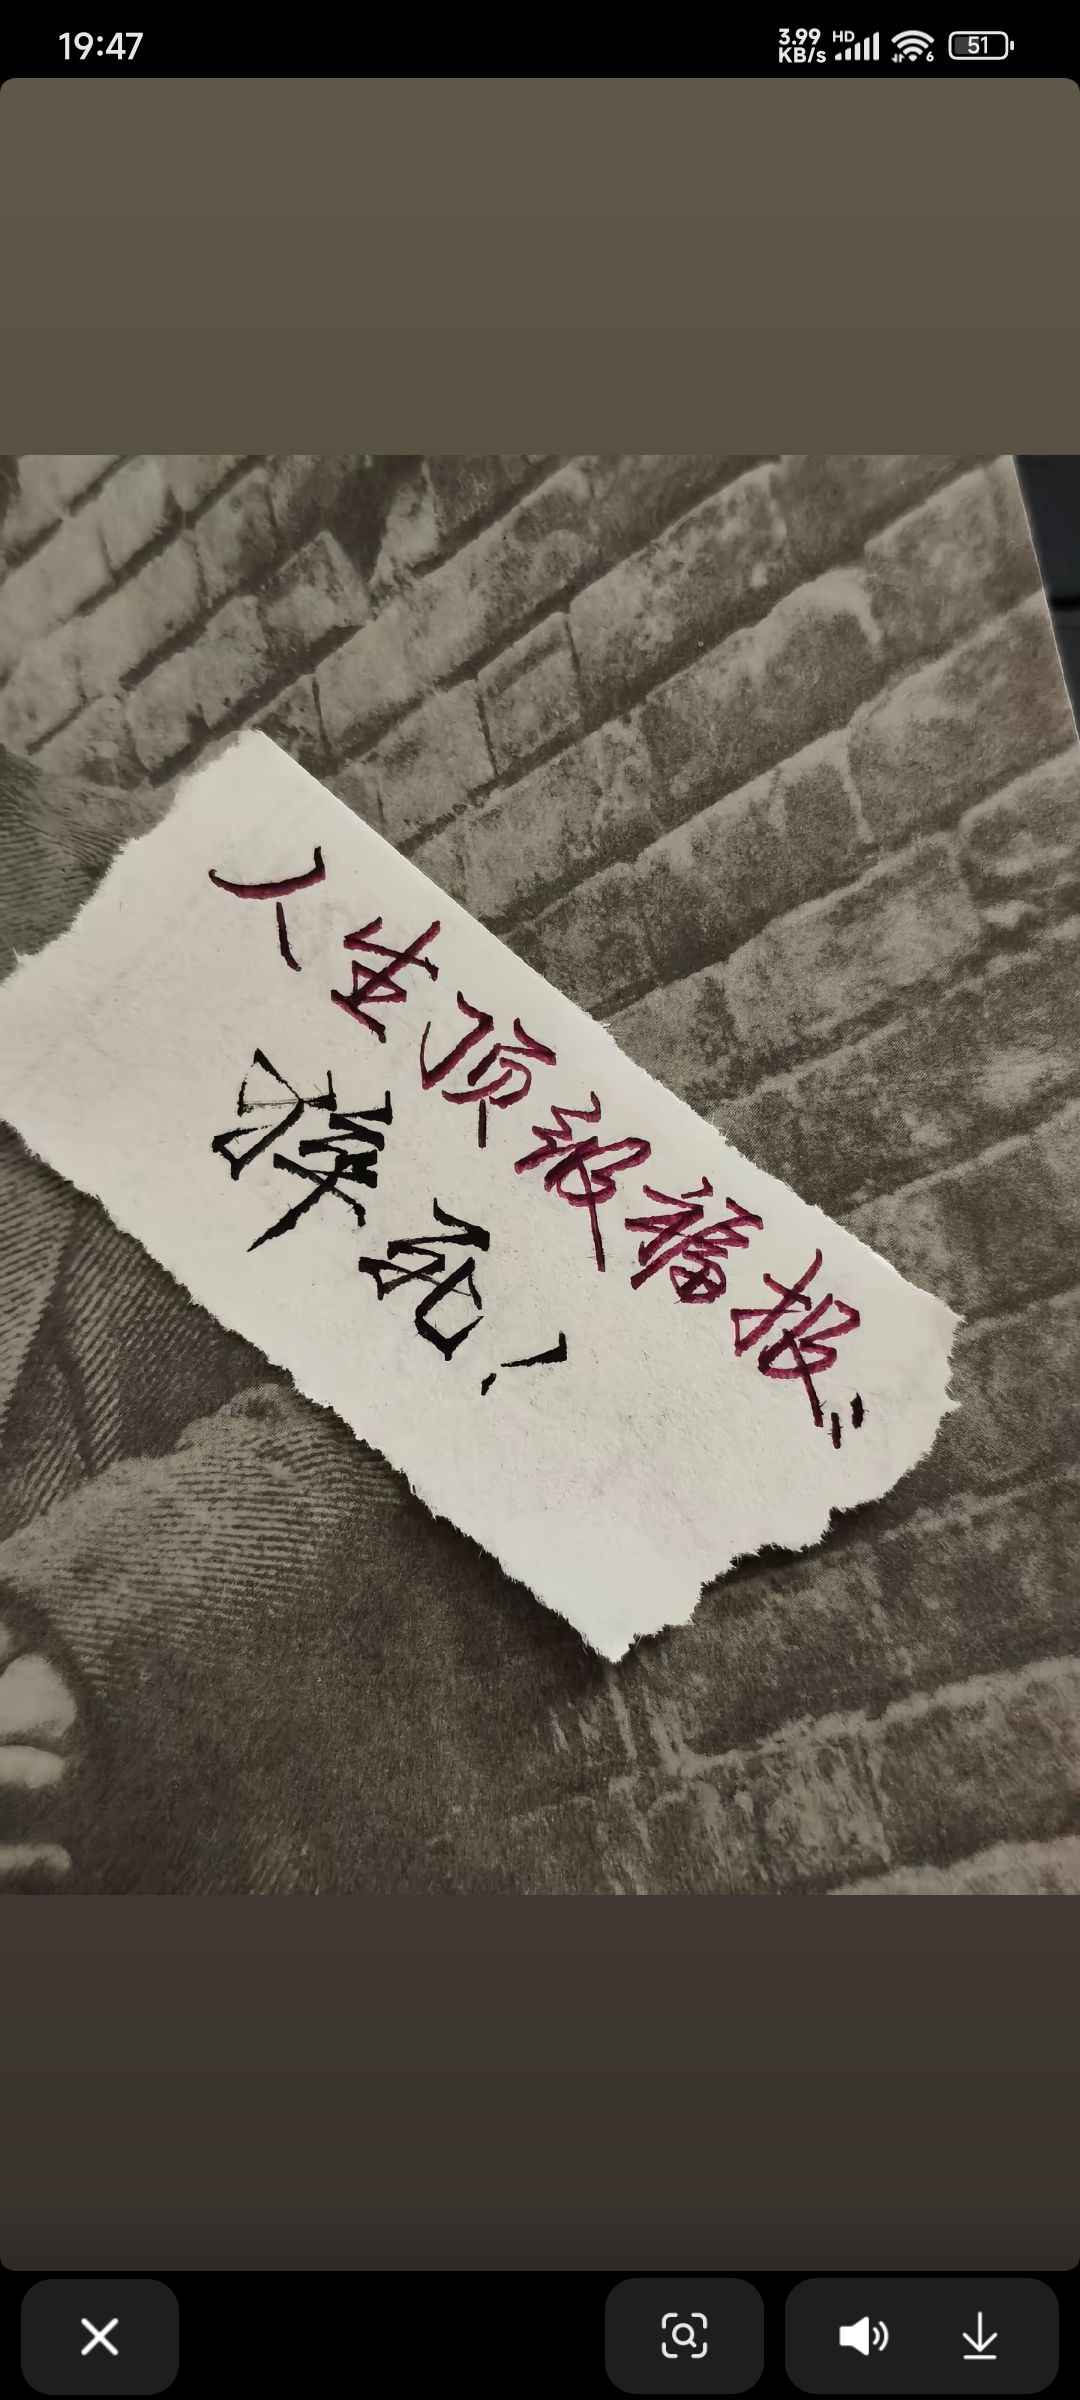 19:47
3.99 KB/s
HD
6
51
人生顶级福报"
猝死！